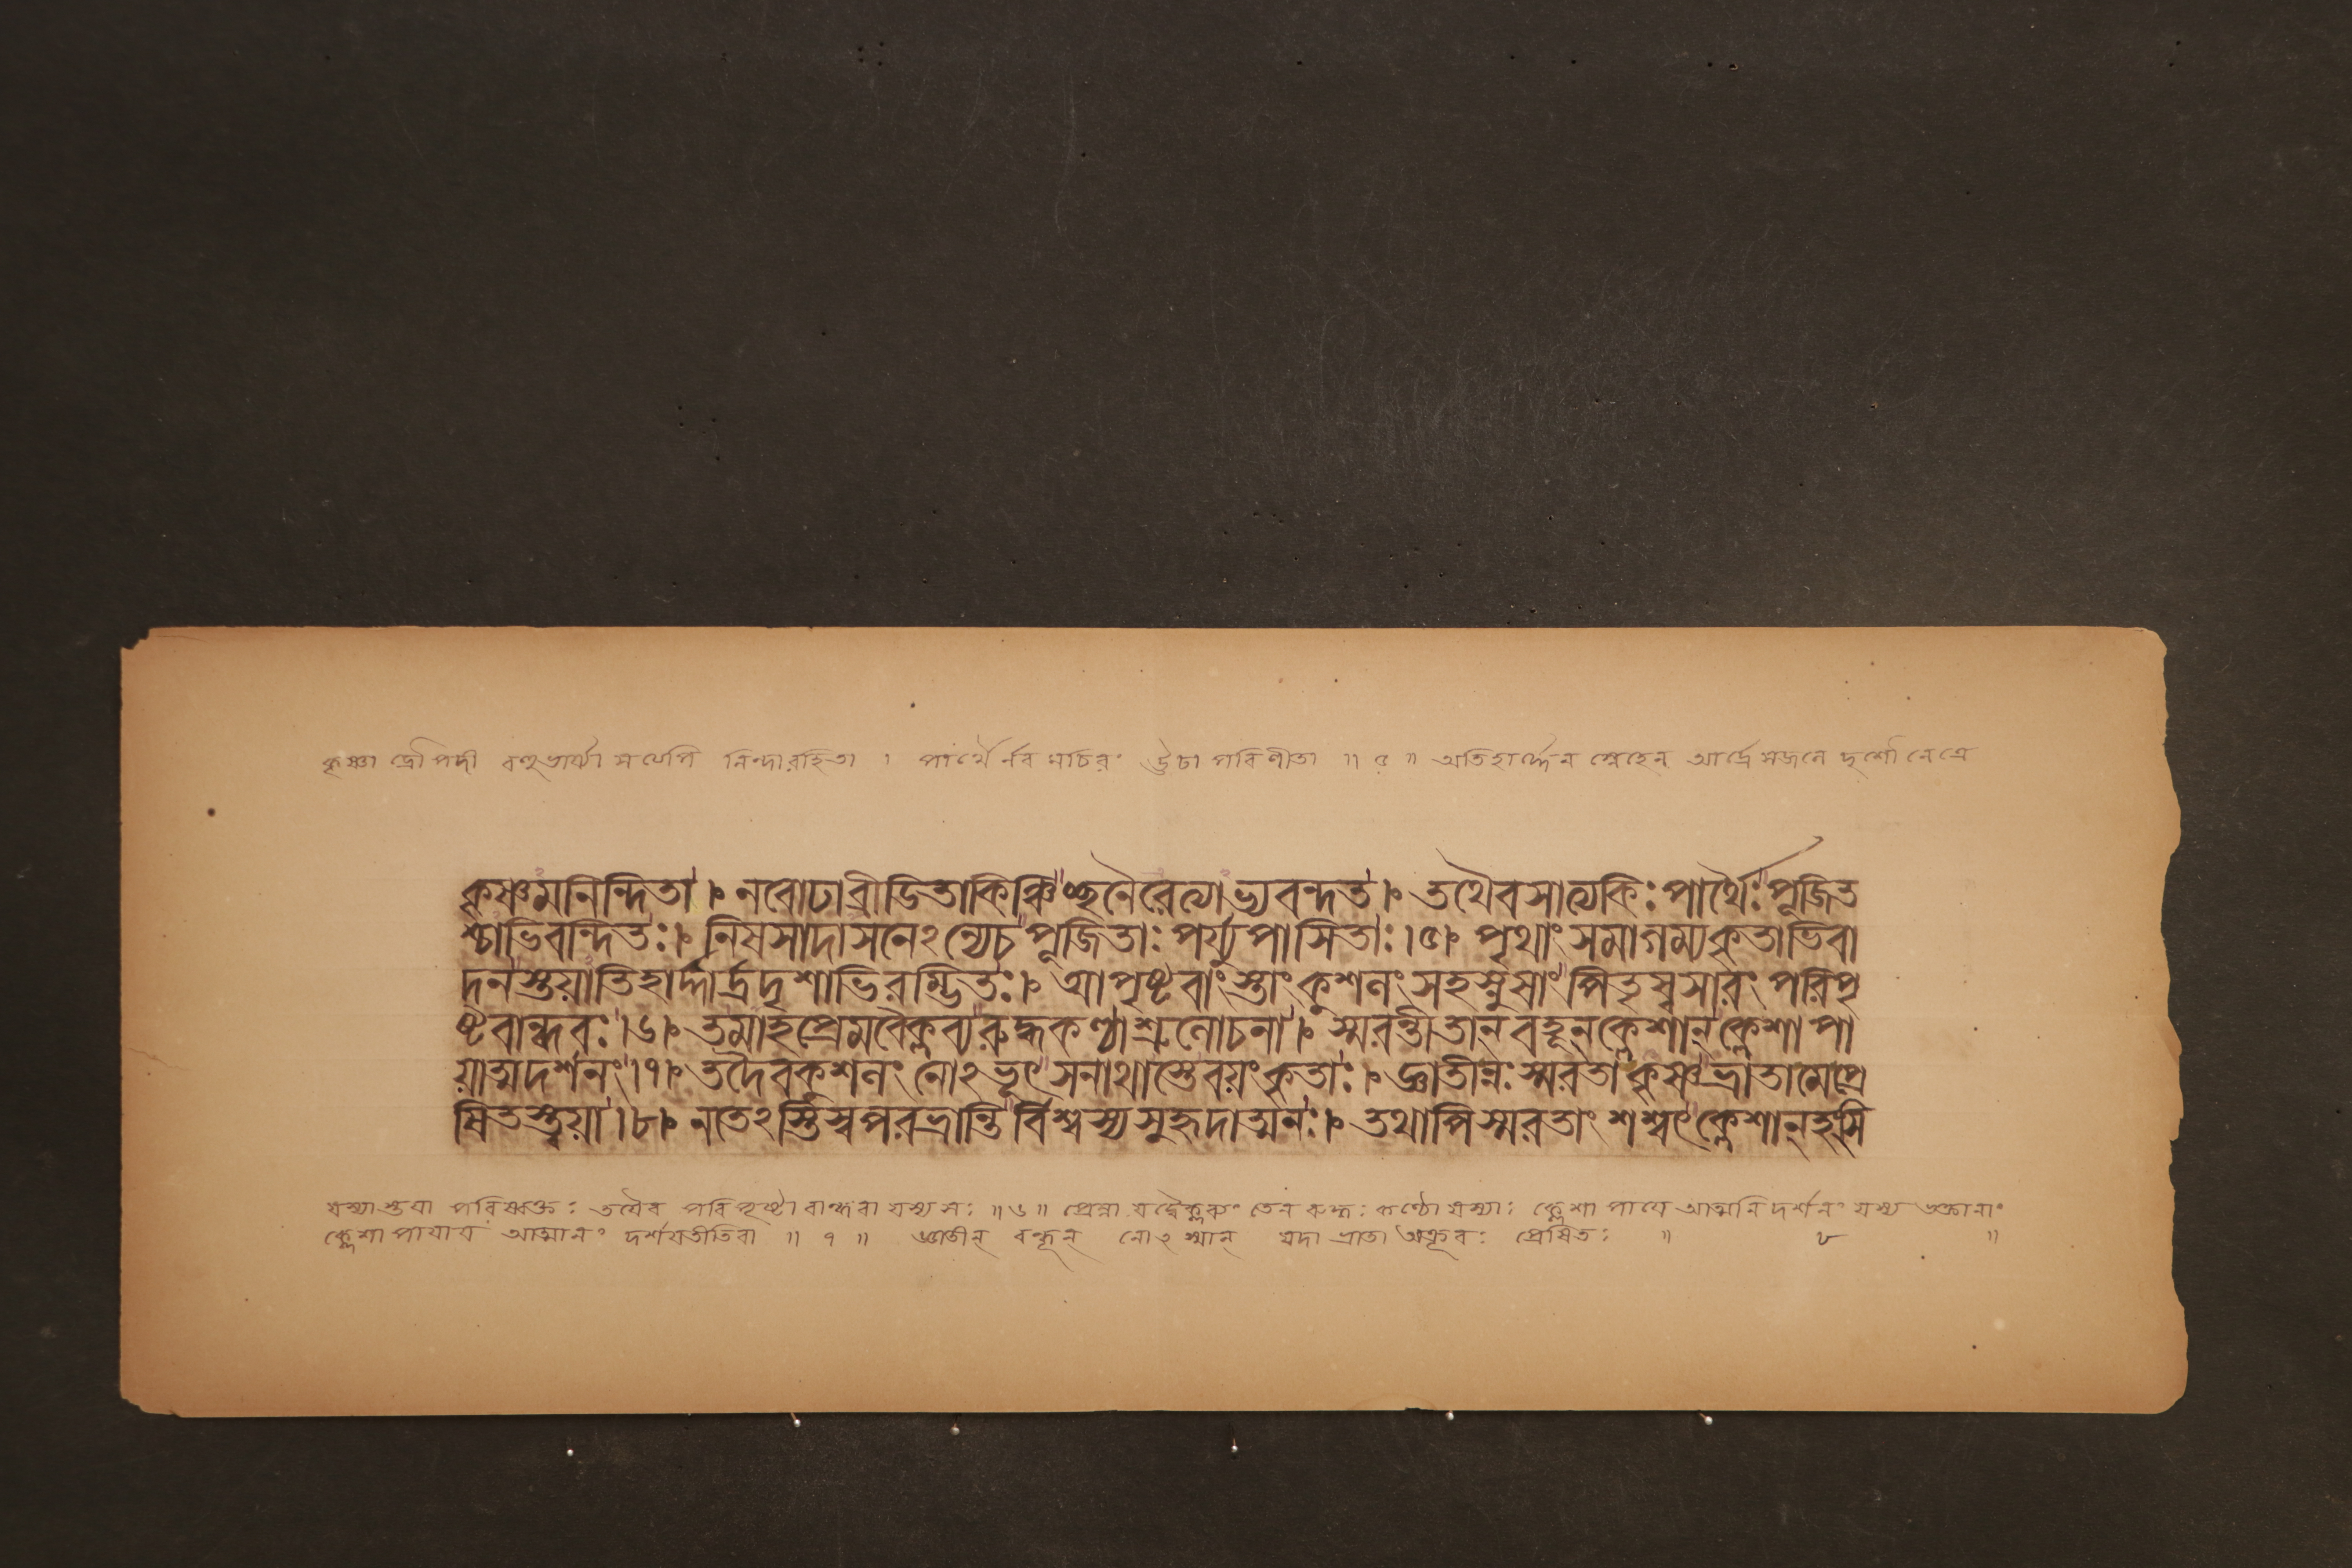 কৃষ্ণা দ্রৌপদী বহুভার্য্যা সত্যেপি নিন্দারহিতা । পার্থৈর্নব মচিরং উঢা পরিণীতা ॥ ৫ ॥ অতিহার্দ্দেন স্নেহেন আর্দ্রে সজলে দৃশৌ নেত্রে
কৃষ্ণমনিন্দিতা । নবোঢাব্রীডিতাকিঞ্চিচ্ছনৈরেত্যাভ্যবন্দত । তথৈবসাত্যকিঃপার্থৈঃপূজিত
শ্চাভিবান্দিতঃ । নিষসাদাসনেঽন্যেচপূজিতাঃ পর্য্যুপাসিতাঃ ।৫। পৃথাংসমাগম্যকৃতাভিবা
দনস্তয়াতিহার্দ্দার্দ্রদৃশাভিরম্ভিতঃ । আপৃষ্টবাংস্তাংকুশলংসহস্নুষাংপিতৃস্বসারং পরিপৃ
ষ্টবান্ধবঃ ।৬। তমাহপ্রেমবৈক্লব্যরুদ্ধকণ্ঠাশ্রুলোচনা । স্মরন্তীতান্ বহূন্ক্লেশান্ক্লেশাপা
য়াত্মদর্শনং ।৭। তদৈবকুশলং নোঽভূৎ সনাথাস্তেবয়ংকৃতাঃ । জ্ঞাতীন্নঃস্মরতাকৃষ্ণভ্রাতামেপ্রে
ষিতস্ত্বয়া ।৮। নতেঽস্তিস্বপরভ্রান্তির্বিশ্বস্যসুহৃদাত্মনঃ । তথাপিস্মরতাং শশ্বৎক্লেশান্হংসি
যস্যাস্তযা পরিষ্বক্তঃ তথৈব পরিপৃষ্টা বান্ধবা যস্য সঃ ॥ ৬ ॥ প্রেম্না যদ্বৈক্লব্যং তেন রুদ্ধঃ কণ্ঠো যস্যাঃ ক্লেশাপাযে আত্মনি দর্শনং যস্য ভক্তানাং
ক্লেশাপাযায আত্মানং দর্শযতীতিবা ॥ ৭ ॥ জ্ঞাতীন্ বন্ধূন্ নোঽস্মান্ যদা ভ্রাতা অক্রূরঃ প্রেষিতঃ ॥ ৮ ॥